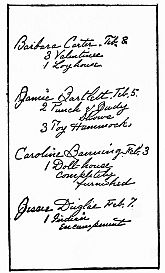 Barbara Carter. Feb. 8
3 Valentines
1 Log house
Jamie Bartlett Feb. 5.
2 Punch & Judy
Shows
3 Toy Hammocks
Caroline Feb. 3
1 Doll house
completely
furnished
Jessie Feb. 7.
1 Indian
encampment